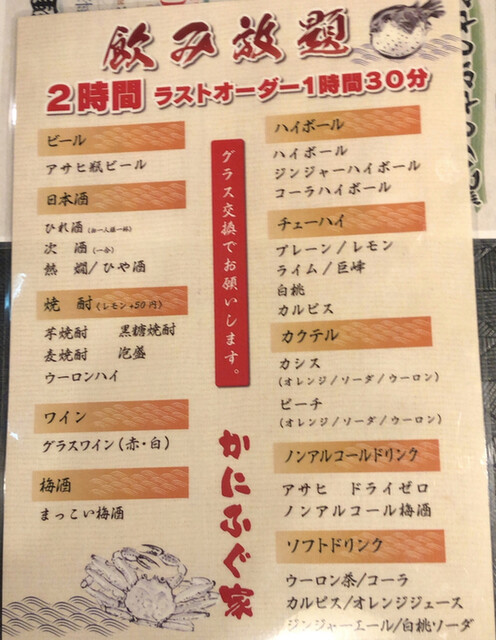 飲み放題
2時間 ラストオーダー1時間30分
ビール
アサヒ瓶ビール
日本酒
ひれ酒(お一人様一杯)
次 酒(一合)
熱 燗/ひや酒
焼 酎(レモン+50円)
芋焼酎 黒糖焼酎
麦焼酎 泡盛
ウーロンハイ
ワイン
グラスワイン(赤・白)
梅酒
まっこい梅酒
グラス交換でお願いします。
かにふぐ家
ハイボール
ハイボール
ジンジャーハイボール
コーラハイボール
チューハイ
プレーン/レモン
ライム/巨峰
白桃
カルピス
カクテル
カシス
(オレンジ/ソーダ/ウーロン)
ピーチ
(オレンジ/ソーダ/ウーロン)
ノンアルコールドリンク
アサヒ ドライゼロ
ノンアルコール梅酒
ソフトドリンク
ウーロン茶/コーラ
カルピス/オレンジジュース
ジンジャーエール/白桃ソーダ